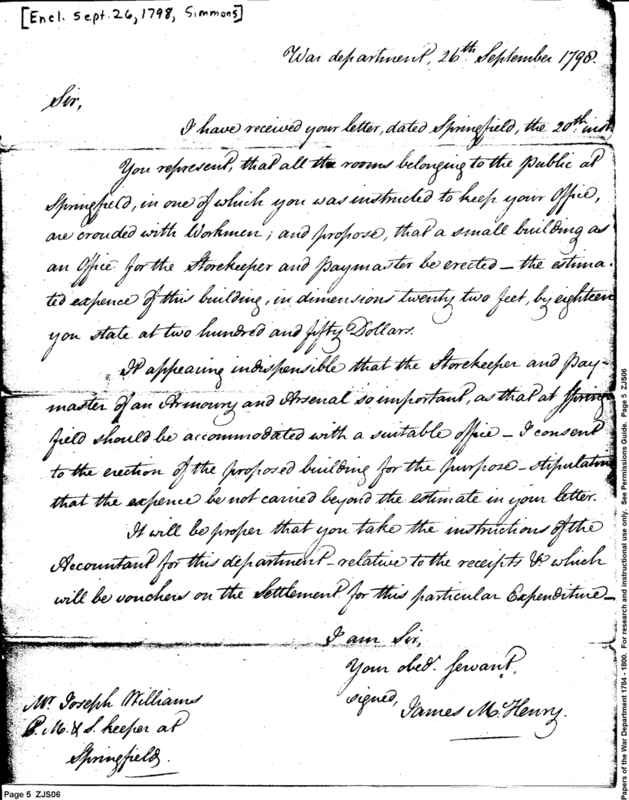 [Encl. Sept. 26, 1798, Simmons]
War department, 26th September 1798.
Sir,
I have received your letter, dated Springfield, the 20th inst.
You represent, that all the rooms belonging to the public at
Springfield, in one of which you was instructed to keep your Office,
are crouded with Workmen; and propose, that a small building as
an Office for the Storekeeper and Paymaster be erected – the estima-
ted expence of this building, in dimensions twenty two feet, by eighteen
you state at two hundred and fifty Dollars.
It appearing indispensible that the Storekeeper and Pay-
master of an Armoury and Arsenal so important, as that at Spring-
field should be accommodated with a suitable office – I consent
to the erection of the proposed building for the purpose – stipulating
that the expence be not carried beyond the estimate in your letter.
It will be proper that you take the instructions of the
Accountant for this department – relative to the receipts & which
will be vouchers on the Settlement for this particular Expenditure –
I am Sir,
Your obed. Servant,
signed,
James McHenry.
Mr. Joseph Williams
P. M. & S. keeper at
Springfield.
Page 5 ZJS06
Papers of the War Department 1784 - 1800. For research and instructional use only. See Permissions Guide. Page 5 ZJS06